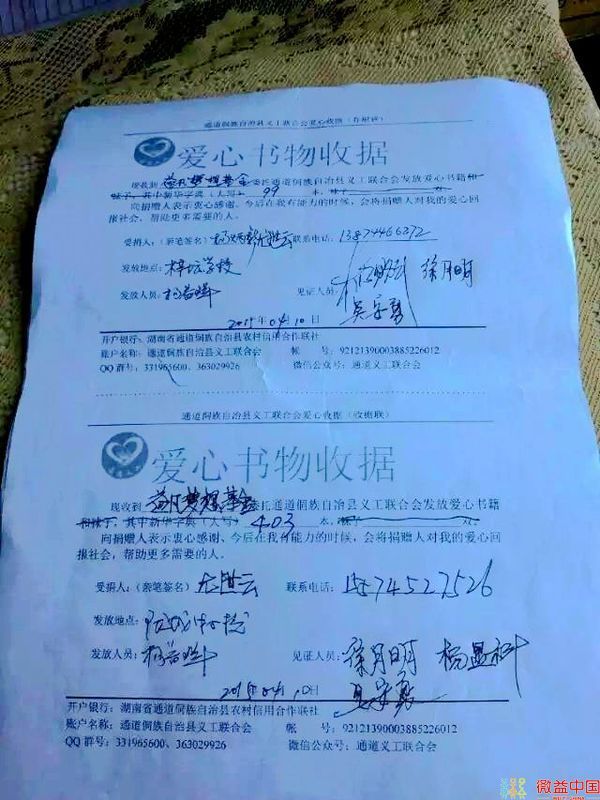 通道侗族自治县义工联合会爱心收据(存根联)
爱心书物收据
现收到 益凡梦想基金委托通道侗族自治县义工联合会发放爱心书籍和
其中新华字典(大写) 99 本,
向捐赠人表示衷心感谢,今后在我有能力的时候,会将捐赠人对我的爱心回
报社会,帮助更多需要的人。
受捐人:(亲笔签名) 联系电话:13874466372
发放地点: 学校
发放人员: 见证人员: 徐月明
吴字勇
2015年04月10日
开户银行:湖南省通道侗族自治县农村信用合作联社
账户名称:通道侗族自治县义工联合会 帐 号:92121390003885226012
QQ群号:331965600、363029926 微信公众号:通道义工联合会
通道侗族自治县义工联合会爱心收据(收据联)
爱心书物收据
现收到 益凡梦想基金委托通道侗族自治县义工联合会发放爱心书籍
其中新华字典(大写) 403 本,
向捐赠人表示衷心感谢,今后在我有能力的时候,会将捐赠人对我的爱心回
报社会,帮助更多需要的人。
受捐人:(亲笔签名) 龙世云 联系电话:15574527526
发放地点:
发放人员: 见证人员: 徐月明
2015年04月10日
开户银行:湖南省通道侗族自治县农村信用合作联社
账户名称:通道侗族自治县义工联合会 帐 号:92121390003885226012
QQ群号:331965600、363029926 微信公众号:通道义工联合会
微益中国